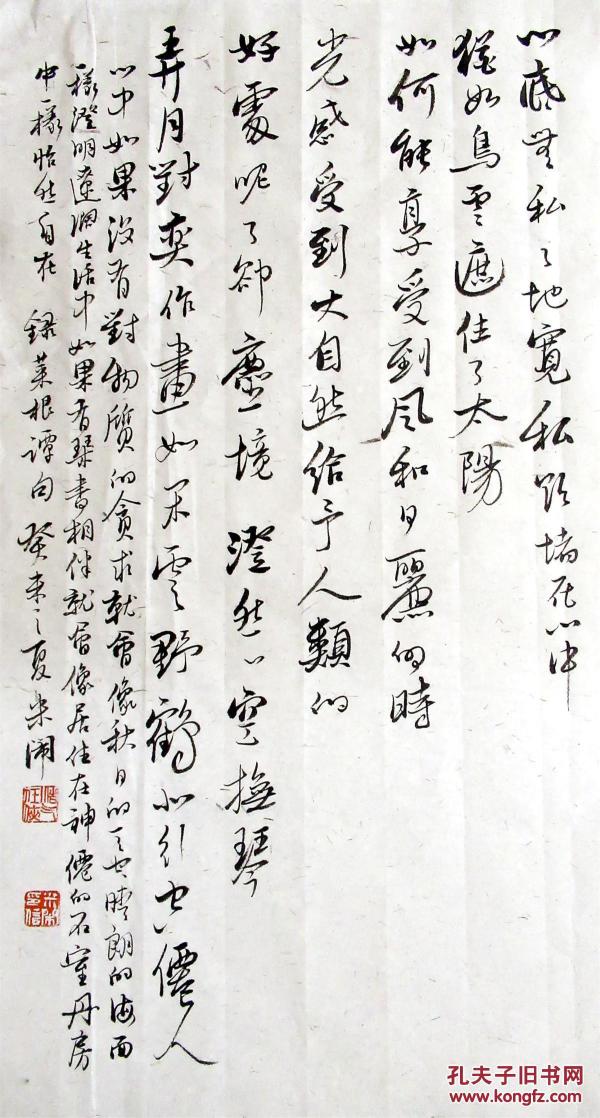 心底無私天地寬 私欲堵在心中
猶如烏雲遮住了太陽
如何能享受到風和日麗的時
光感受到大自然給予人類的
好處呢了卻塵境 澄然心空撫琴
弄月對奕作畫一如閑雲野鶴
心中如果沒有對物質的貪求就會像秋日的天空晴朗的海面
一樣澄明遼闊生活中如果有琴書相伴就會像居住在神僊的石室丹房
中一樣怡然自在 錄菜根譚句 癸未之夏
孔夫子旧书网
www.kongfz.com